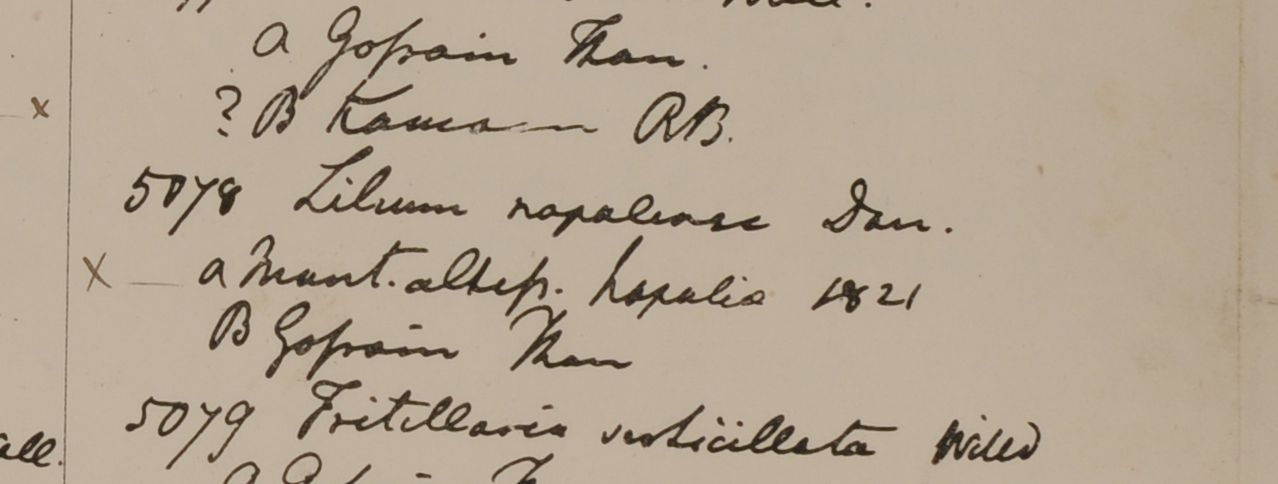 a Gossain Than.
? B Kamaon RB.
5078 Lilium napalense Don.
x a Mont. altiss. Napalia 1821
B Gossain Than
5079 Fritillaria verticillata Willd
all.